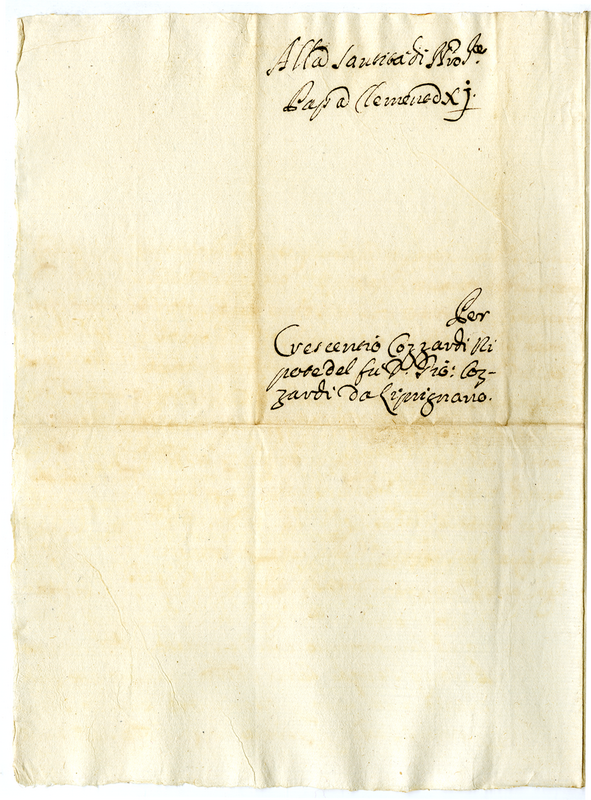 Alla Santità di Nro Sre
Papa Clemente XJ.
Per
Crescentio Cozzardi Ni
pote del fu D. Gio: Coz-
zardi da Liprignano.